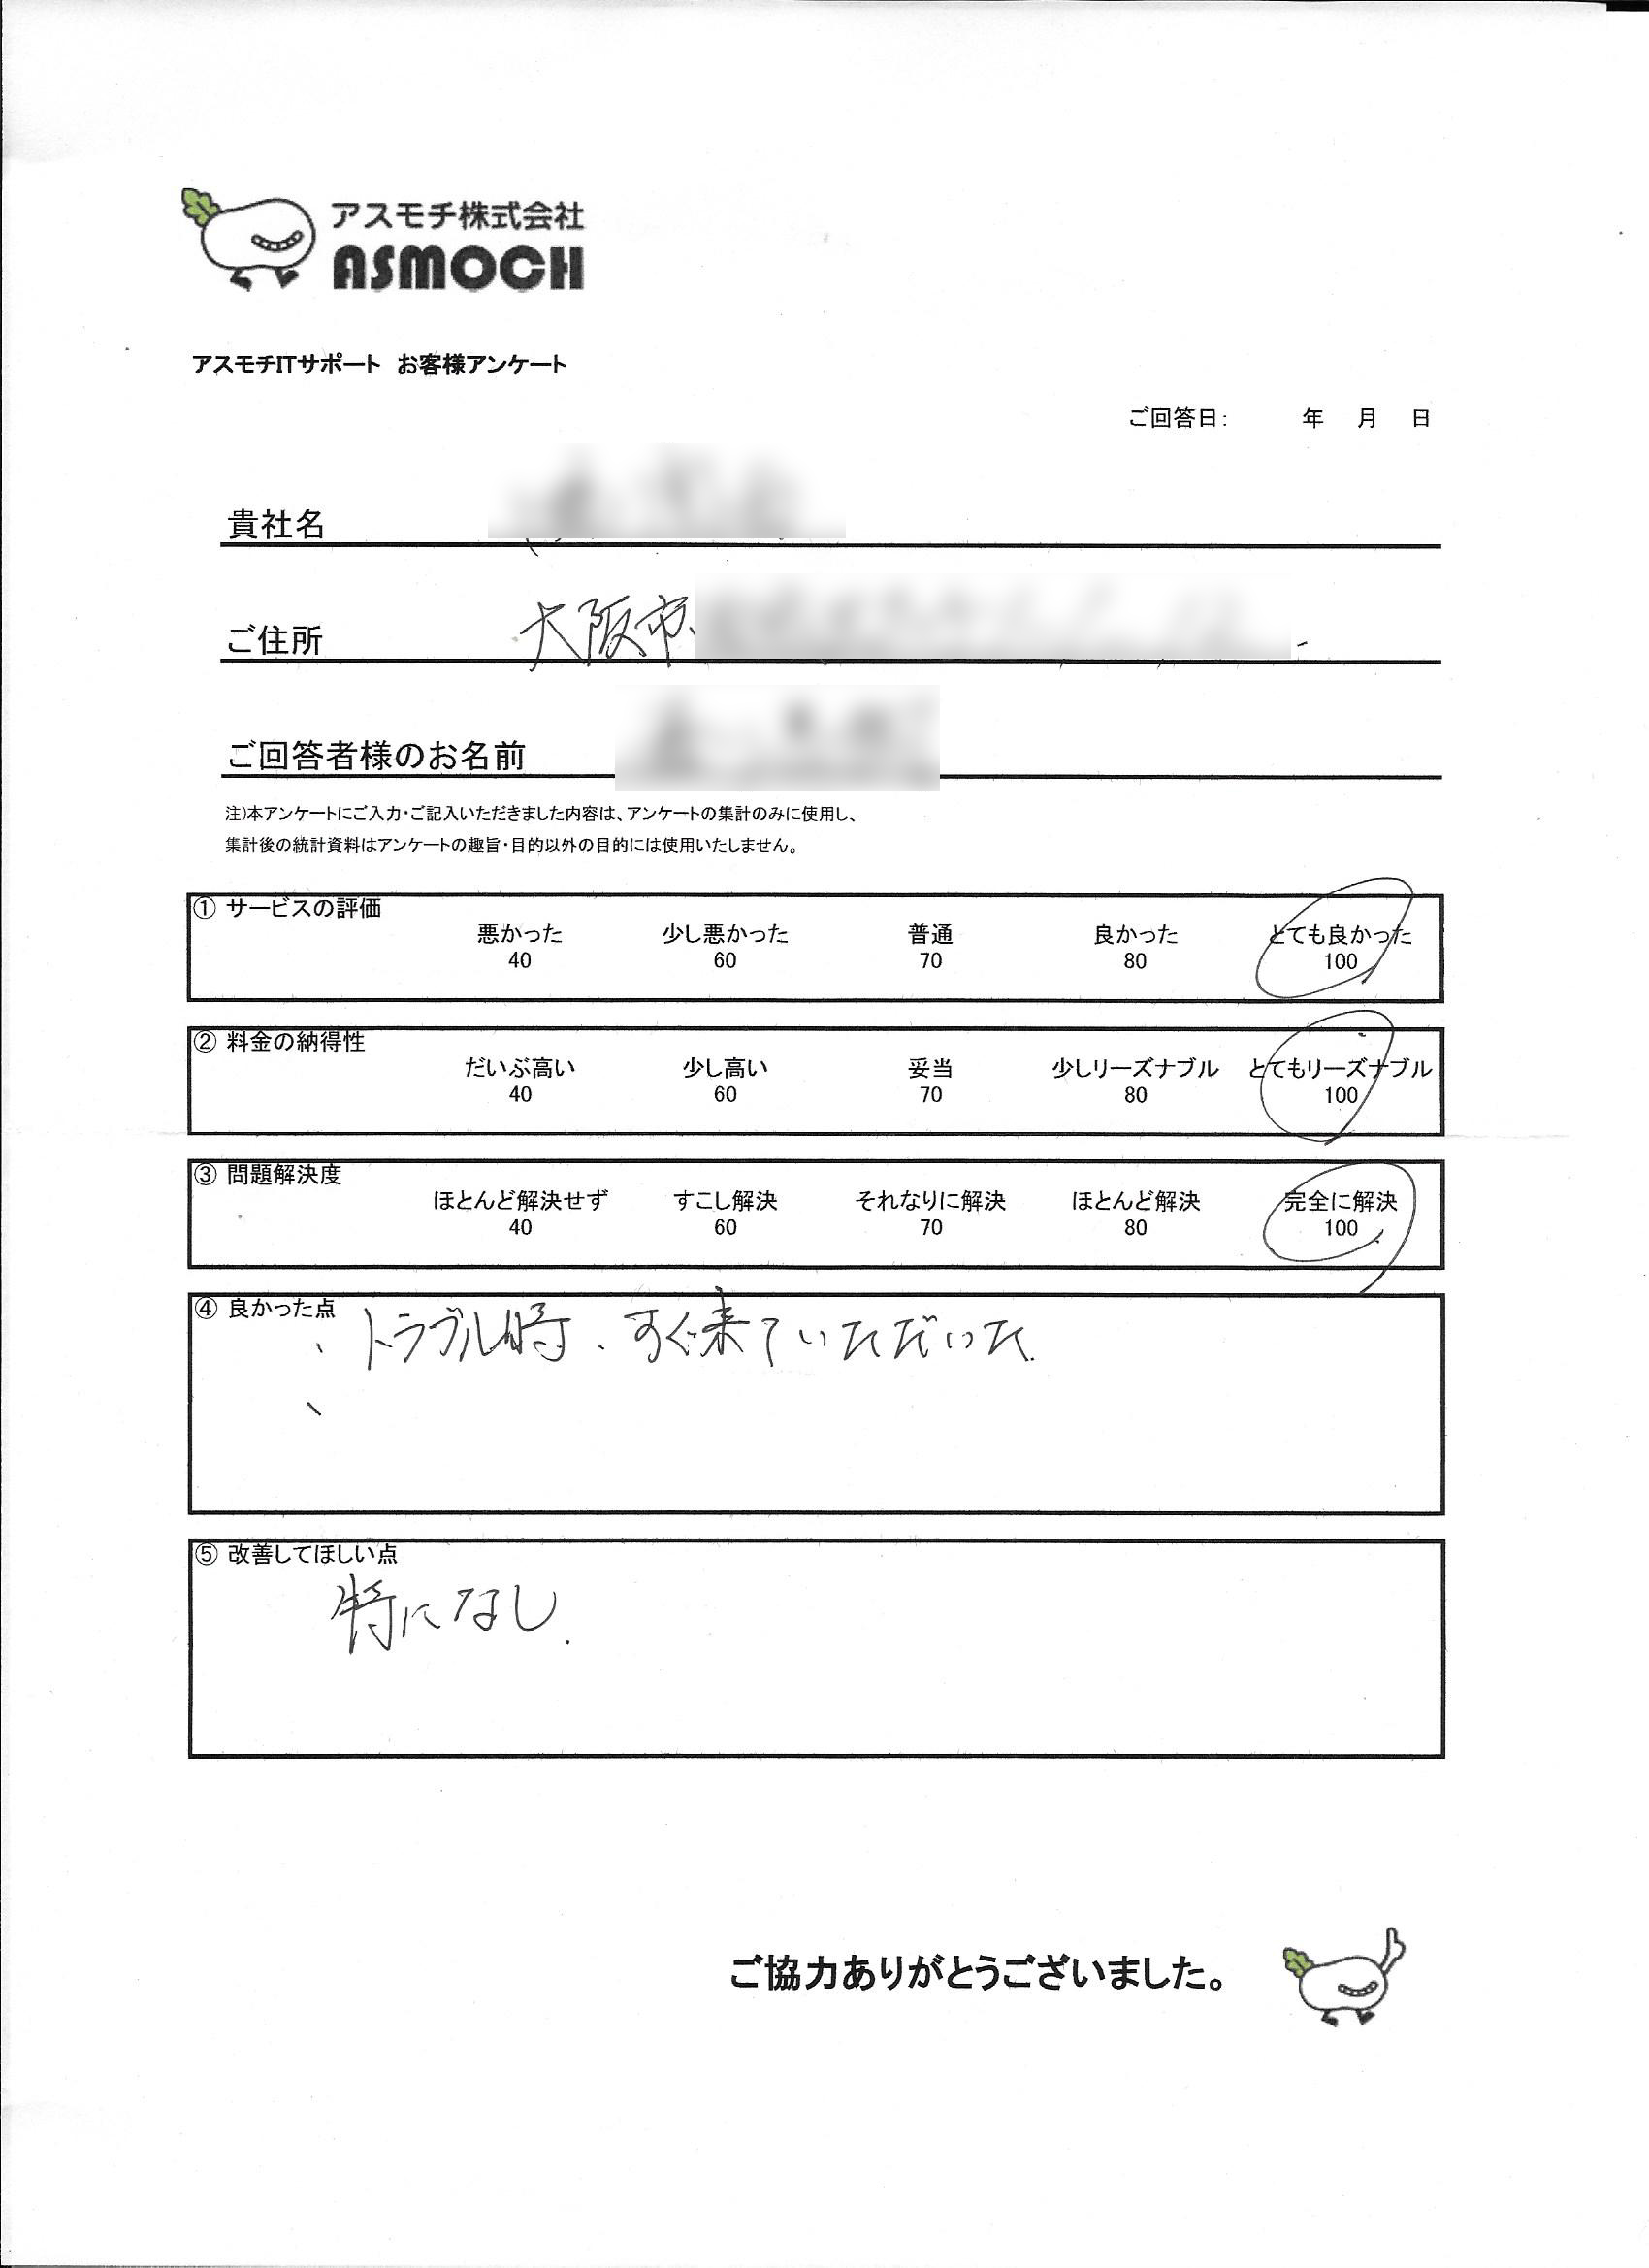 アスモチ株式会社
ASMOCH
アスモチITサポート お客様アンケート
ご回答日: 年 月 日
貴社名
ご住所 大阪市
ご回答者様のお名前
注)本アンケートにご入力・ご記入いただきました内容は、アンケートの集計のみに使用し、
集計後の統計資料はアンケートの趣旨・目的以外の目的には使用いたしません。
① サービスの評価
悪かった 少し悪かった 普通 良かった とても良かった
40 60 70 80 100
② 料金の納得性
だいぶ高い 少し高い 妥当 少しリーズナブル とてもリーズナブル
40 60 70 80 100
③ 問題解決度
ほとんど解決せず すこし解決 それなりに解決 ほとんど解決 完全に解決
40 60 70 80 100
④ 良かった点
、トラブル時、すぐ来ていただいた.
、
⑤ 改善してほしい点
特になし.
ご協力ありがとうございました。